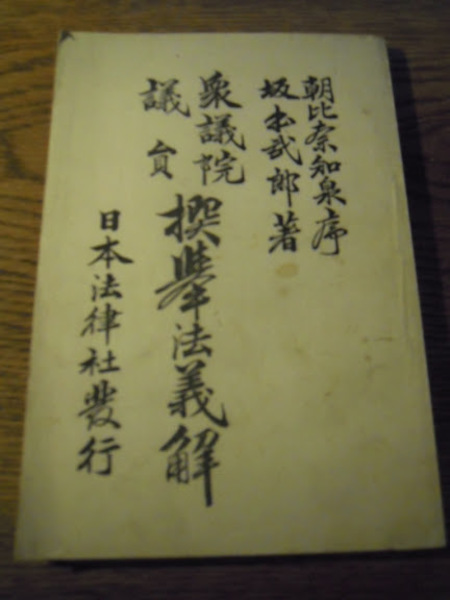 朝比奈知泉序
坂本武郎著
衆議院
議員
撰擧法義解
日本法律社發行